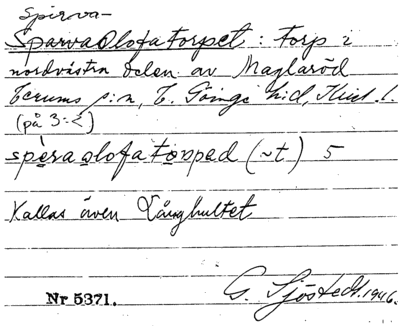 Spirva-
Sparvaolofatorpet: torp i
nordvästra delen av Maglaröd
Verums s:n, V. Göinge hd, Krist. l.
(på 3:<)
spèraolofatoṛped (~t) 5
Kallas även Långhultet
Nr 5371. G. Sjöstedt. 1946.